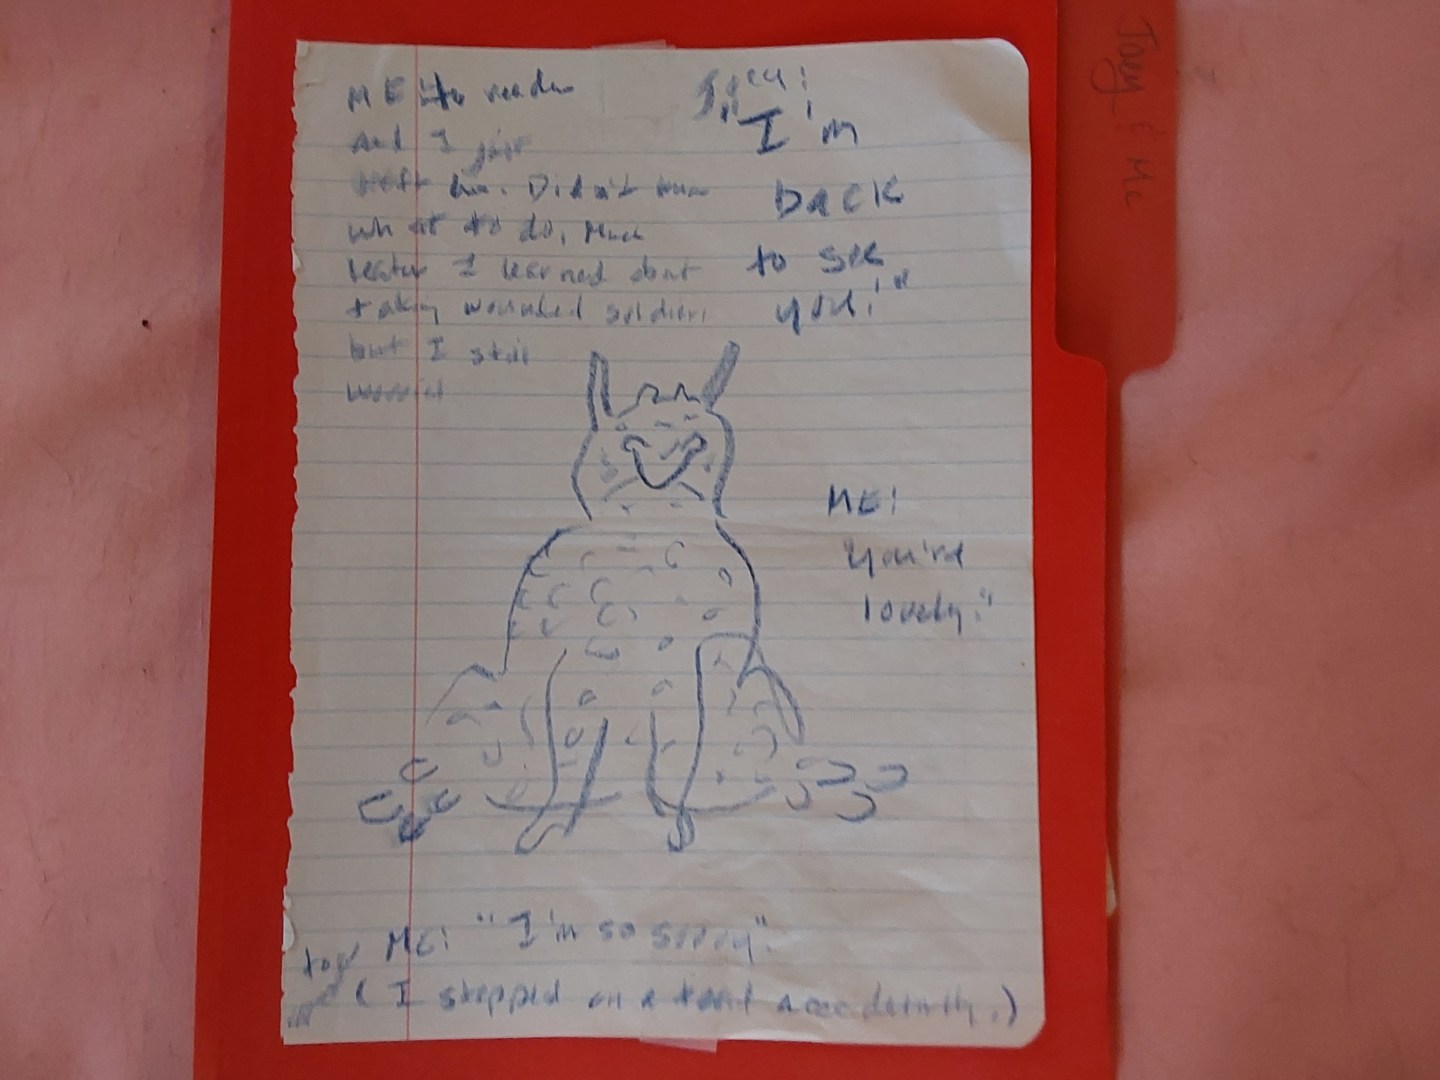 ME: to reader
And I just
left him. Didn't know
what to do. Much
later I learned about
taking wounded soldiers
but I still
worried
"I'm
back
to see
you!"
ME:
You're
lovely."
ME: "I'm so sorry".
(I stepped on a toad accidently.)
Joey & Me